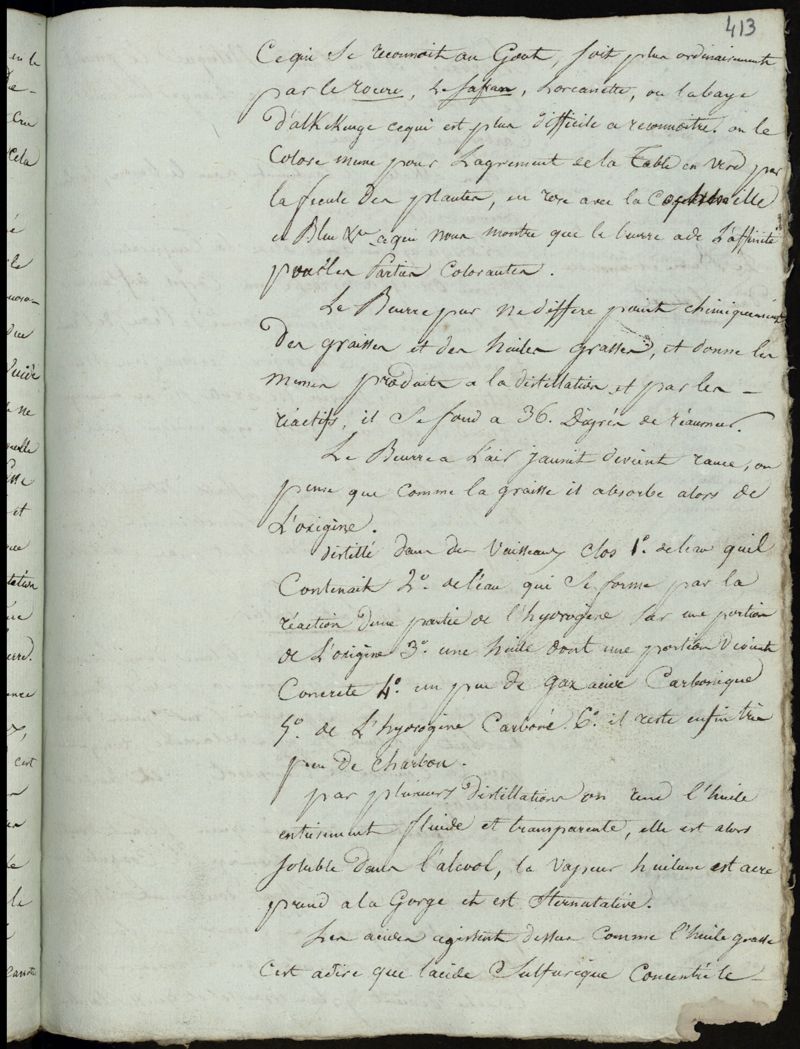 413
Cequi se reconnoit au Gout, soit plus ordinairement
par le rocou, le safran, Lorcanette, ou la baye
D'alkekenge cequi est plus difficile a reconnoitre. on le
Colore meme pour Lagrement de la Table en verd par
la fecule des plantes, en rose avec la Cochenille
en Bleu &a cequi nous montre que le beurre a de L'affinité
pour les Parties Colorantes.
Le Beurre pur ne differe point chimiquement
Des graisses et des huiles grasses, et donne les
memes produits a la distillation et par les –
réactifs, il se fond a 36. Dégrés de réaumur.
Le Beurre a L'air jaunit devient rance, on
pense que comme la graisse il absorbe alors de
L'oxigène.
distillé dans des Vaisseaux clos 1º. de leau quil
Contenait 2º. de l'eau qui se forme par la
réaction dune partie de l'hydrogene sur une portion
de L'oxigène 3º. une huile dont une portion Devient
Concrete 4º. un peu de gaz acide Carbonique
5º. de L'hydrogène Carboné. 6º. il reste enfin très
peu de charbon.
par plusieurs distillations on rend l'huile
entierement fluide et transparente, elle est alors
soluble dans l'alcool, la vapeur huileuse est acre
prend a la Gorge et est sternutative.
Les acides agissent dessus comme l'huile grasse
C'est adire que lacide Sulfurique Concentré le –